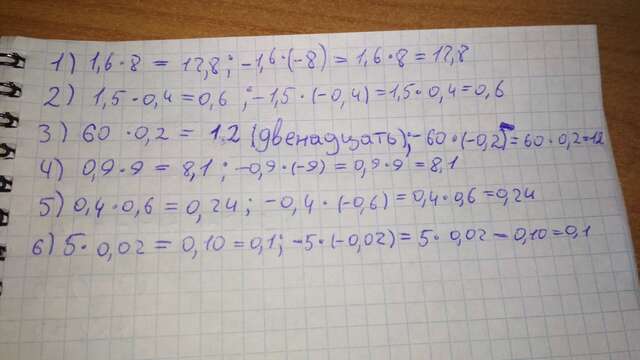 1) 1,6 · 8 = 12,8 ; -1,6 · (-8) = 1,6 · 8 = 12,8
2) 1,5 · 0,4 = 0,6 ; -1,5 · (-0,4) = 1,5 · 0,4 = 0,6
3) 60 · 0,2 = 12 (двенадцать); -60 · (-0,2) = 60 · 0,2 = 12
4) 0,9 · 9 = 8,1 ; -0,9 · (-9) = 0,9 · 9 = 8,1
5) 0,4 · 0,6 = 0,24 ; -0,4 · (-0,6) = 0,4 · 0,6 = 0,24
6) 5 · 0,02 = 0,10 = 0,1 ; -5 · (-0,02) = 5 · 0,02 = 0,10 = 0,1